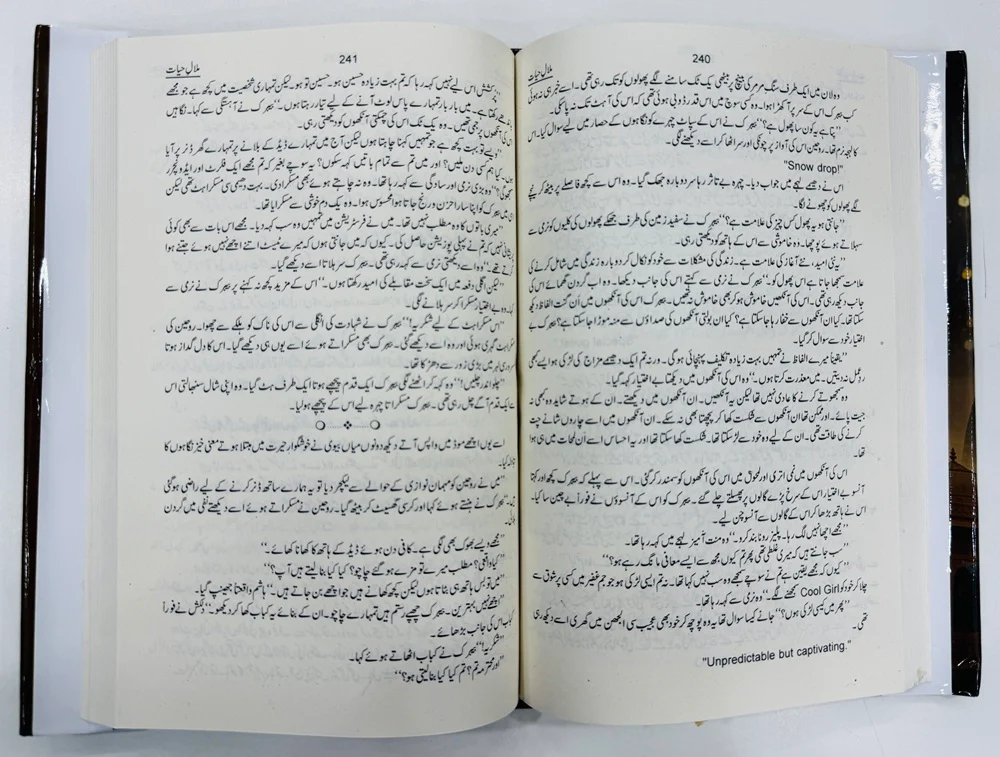 240
ملال حیات
وہ لان میں ایک طرف سنگ مرمر کی بینچ پر بیٹھی یک ٹک سامنے لگے پھولوں کو تک رہی تھی۔ اسے خبر ہی نہ ہوئی
کب بیبرک اس کے سر پر آ کھڑا ہوا۔ وہ کسی سوچ میں اس قدر ڈوبی ہوئی تھی کہ اس کی آہٹ تک نہ پا سکی۔
"پتا ہے یہ کون سا پھول ہے؟" بیبرک نے اس کے سپاٹ چہرے کو نگاہوں کے حصار میں لیے سوال کیا۔ اس
کا لہجہ نرم تھا۔ روجین اس کی آواز پر چونکی اور سر اٹھا کر اسے دیکھنے لگی۔
"Snow drop!"
اس نے دھیمے لہجے میں جواب دیا۔ چہرہ بے تاثر رہا سر دوبارہ جھک گیا۔ وہ اس سے کچھ فاصلے پر بیٹھ کر نیچے
لگے پھولوں کو چھونے لگا۔
"جانتی ہو یہ پھول کس چیز کی علامت ہے؟" بیبرک نے سفید زمین کی طرف جھکے پھولوں کی کلیوں کو نرمی سے
سہلاتے ہوئے پوچھا۔ وہ خاموشی سے اس کے ہاتھ کو دیکھتی رہی۔
"یہ نئی امید، نئے آغاز کی علامت ہے۔ زندگی کی مشکلات سے خود کو نکال کر دوبارہ زندگی میں شامل کرنے کی
علامت سمجھا جاتا ہے اس پھول کو۔" بیبرک نے نرمی سے کہتے اس کی جانب دیکھا۔ وہ اب گردن گھمائے اس کی
جانب دیکھ رہی تھی۔ اس کی آنکھیں خاموش ہو کر بھی خاموش نہ تھیں۔ بیبرک اس کی آنکھوں میں ان گنت الفاظ دیکھ
سکتا تھا۔ کیا ان آنکھوں سے خفا رہا جا سکتا ہے؟ کیا ان بولتی آنکھوں کی صداؤں سے منہ موڑا جا سکتا ہے؟ بیبرک بے
اختیار خود سے سوال کر گیا۔
"یقیناً میرے الفاظ نے تمہیں بہت زیادہ تکلیف پہنچائی ہوگی۔ ورنہ تم ایک دھیمے مزاج کی لڑکی ہو ایسے بھی
ردعمل نہ دیتیں۔ میں معذرت کرتا ہوں۔" وہ اس کی آنکھوں میں دیکھتا بے اختیار کہہ گیا۔
وہ سمجھوتے کرنے کا عادی نہیں تھا لیکن یہ آنکھیں۔ ان آنکھوں میں دیکھتے۔ ان کے ہوتے شاید وہ کبھی نہ
جیت پائے۔ اور ممکن تھا ان آنکھوں سے شکست کھا کر پچھتا بھی نہ سکے۔ ان آنکھوں میں اسے چاروں شانے چت
کرنے کی طاقت تھی۔ ان کے لیے وہ خود سے لڑ سکتا تھا۔ شکست کھا سکتا تھا اور یہ احساس اسے اُن لمحات میں ہی ہوا
تھا۔
اس کی آنکھوں میں نمی اتری اور لمحوں میں اس کی آنکھوں کو سمندر کر گئی۔ اس سے پہلے کہ بیبرک کچھ اور کہتا
آنسو بے اختیار اس کے سرخ پڑے گالوں پر پھسلتے چلے گئے۔ بیبرک کو اس کے آنسوؤں نے فوراً بے چین سا کیا۔
اس نے ہاتھ بڑھا کر اس کے گالوں سے آنسو چن لیے۔
"مجھے اچھا نہیں لگ رہا۔ پلیز رونا بند کرو۔" وہ منت آمیز لہجے میں کہہ رہا تھا۔
"سب جانتے ہیں کہ میری غلطی تھی پھر تم کیوں مجھ سے ایسے معافی مانگ رہے ہو؟"
"کیوں کہ مجھے یقین ہے تم نے سوچے سمجھے وہ سب نہیں کہا تھا۔ نہ تم ایسی لڑکی ہو جو ہم عضر میں کسی پر شوق سے
چلا کر خود کو Cool Girl سمجھنے لگے۔" وہ نرمی سے کہہ رہا تھا۔
"پھر میں کیسی لڑکی ہوں؟" جانے کیسا سوال تھا یہ وہ پوچھ کر خود بھی عجیب سی الجھن میں گھری اسے دیکھ رہی
تھی۔
"Unpredictable but captivating."
241
ملال حیات
"پرکشش اس لیے نہیں کہہ رہا کہ تم بہت زیادہ حسین ہو۔ حسین تو ہو۔ لیکن تمہاری شخصیت میں کچھ ہے جو مجھے
رکھتا ہے۔ میں بار بار تمہارے پاس لوٹ آنے کے لیے تیار رہتا ہوں۔" بیبرک نے آہستگی سے کہا۔ نگاہیں
اس کی آنکھوں پر جمی تھیں۔ وہ یک ٹک اس کی چمکتی آنکھوں کو دیکھتی رہی۔
"ویسے تو بہت کچھ ہے جو تمہیں کہنا چاہتا ہوں لیکن آج میں تمہارے ڈیڈ کے بلانے پر تمہارے گھر ڈنر پر آیا
ہوں۔ کیا ہم کسی دن ملیں؟ اور میں تم سے تمام باتیں کہہ سکوں؟ یہ سوچے بغیر کہ تم مجھے ایک فلرٹ اور ایڈونچرر
سمجھو گی؟" وہ بڑی نرمی اور سادگی سے کہہ رہا تھا۔ وہ نہ چاہتے ہوئے بھی مسکرا دی۔ بہت دھیمی سی مسکراہٹ تھی لیکن
بیبرک کو اپنا سارا حزن و رنج جاتا ہوا محسوس ہوا۔ وہ یک دم خوشی سے مسکرایا تھا۔
"میری باتوں کا وہ مطلب نہیں تھا۔ میں نے فرسٹریشن میں تمہیں وہ سب کہہ دیا۔ مجھے اس بات سے بھی کوئی
پریشانی نہیں کہ تم نے پہلی پوزیشن حاصل کی۔ کیوں کہ میں جانتی ہوں کہ میرے ٹیسٹ اتنے اچھے نہیں ہوئے جتنے ہوا
کرتے تھے۔" وہ اسے دیکھتی نرمی سے کہہ رہی تھی۔ بیبرک سر ہلاتا اسے دیکھے گیا۔
"لیکن اگلی دفعہ میں ایک سخت مقابلے کی امید رکھتا ہوں۔" اس کے مزید کچھ نہ کہنے پر بیبرک نے نرمی سے
کہا۔ وہ بے اختیار مسکرا کر سر ہلانے لگی۔
"اس مسکراہٹ کے لیے شکریہ!" بیبرک نے شہادت کی انگلی سے اس کی ناک کو ہلکے سے چھوا۔ روجین کی
مسکراہٹ گہری ہوئی اور وہ اسے دیکھے گئی۔ بیبرک بھی مسکراتے ہوئے اسے یوں ہی دیکھے گیا۔ اس کا دل گداز ہوتا
بھر میں بڑی زور سے دھڑکا تھا۔
"چلو اندر چلیں!" وہ کہہ کر اٹھنے لگی بیبرک ایک قدم پیچھے ہوتا ایک طرف ہٹ گیا۔ وہ اپنی شال سنبھالتی اس
سے ایک قدم آگے چل رہی تھی۔ بیبرک مسکراتا چہرہ لیے اس کے پیچھے ہولیا۔
اسے یوں اچھے موڈ میں واپس آتے دیکھ دونوں میاں بیوی نے خوشگوار حیرت میں مبتلا ہوتے معنی خیز نگاہوں کا
تبادلہ کیا۔
"میں نے روجین کو مہمان نوازی کے حوالے سے لیکچر دیا تو یہ ہمارے ساتھ ڈنر کرنے کے لیے راضی ہو گئی
بیبرک نے ہنستے ہوئے کہا اور کرسی گھسیٹ کر بیٹھ گیا۔ روجین نے مسکراتے ہوئے اسے دیکھتے نفی میں گردن
ہلائی۔
"مجھے ویسے بھوک بھی لگی ہے۔ کافی دن ہوئے ڈیڈ کے ہاتھ کا کھانا کھائے۔"
"کیا واقعی؟ مطلب میرے تو مزے ہو گئے چاچو؟ کیا کیا بنا لیتے ہیں آپ؟"
"میں تو بس ہاتھ ہی بٹاتا ہوں لیکن کچھ کھانے ہیں جو اچھے بن جاتے ہیں۔" ہاشم واقعتاً جھینپ گیا۔
"اچھے نہیں بہترین۔ بیبرک چھپے رستم ہیں تمہارے چاچو۔ ان کے بنائے یہ کباب کھا کر دیکھو۔" دلکش نے فوراً
کباب اس کی جانب بڑھائے۔
"شکریہ!" بیبرک نے کباب اٹھاتے ہوئے کہا۔
"اور محترمہ تم؟ تم کیا کیا بنا لیتی ہو؟"